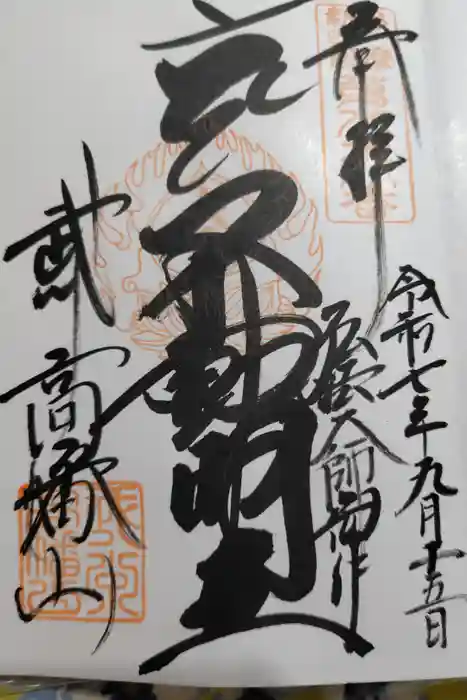 奉拝
令和七年九月十五日
慈覚大師御作
不動明王
武
高幡山